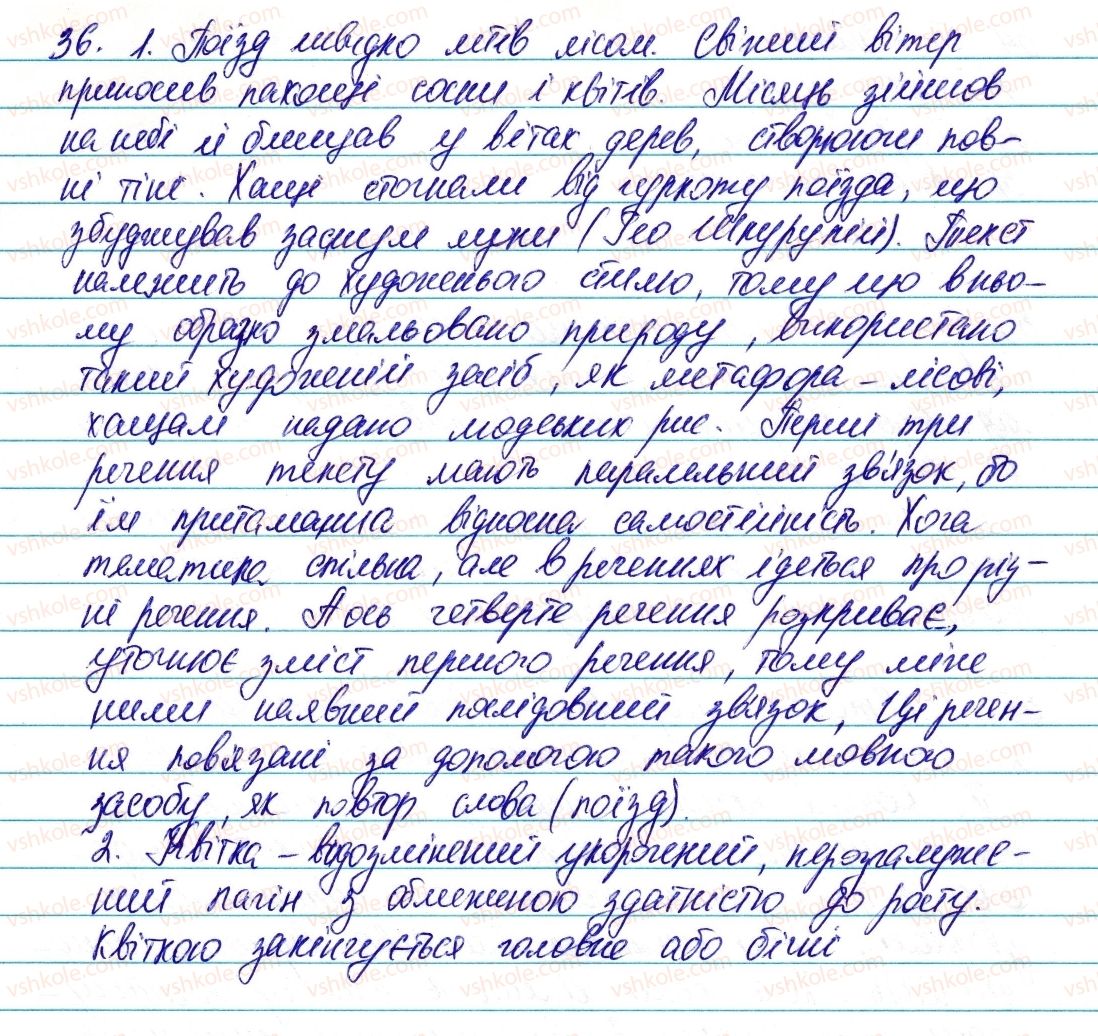 36. 1. Поїзд швидко летів лісом. Свіжий вітер
приносив пахощі сосни і квітів. Місяць зійшов
на небі й блищав у вітах дерев, створюючи пов-
ні тіні. Хащі стогнали від гуркоту поїзда, що
збуджував заснулі лужи (Гео Шкурупій). Текст
належить до художнього стилю, тому що в ньо-
му образно змальовано природу, використано
такий художній засіб, як метафора - лісові,
хащам надано людських рис. Перші три
речення тексту мають паралельний зв'язок, бо
їм притаманна відносна самостійність. Хоча
тематика спільна, але в реченнях ідеться про різ-
ні речення. А ось четверте речення розкриває,
уточнює зміст першого речення, тому між
ними наявний послідовний зв'язок, Ці речен-
ня пов'язані за допомогою такого мовного
засобу, як повтор слова (поїзд).
2. Квітка - видозмінений укорочений, нерозгалуже-
ний пагін з обмеженою здатністю до росту.
Квіткою закінчується головне або бічні